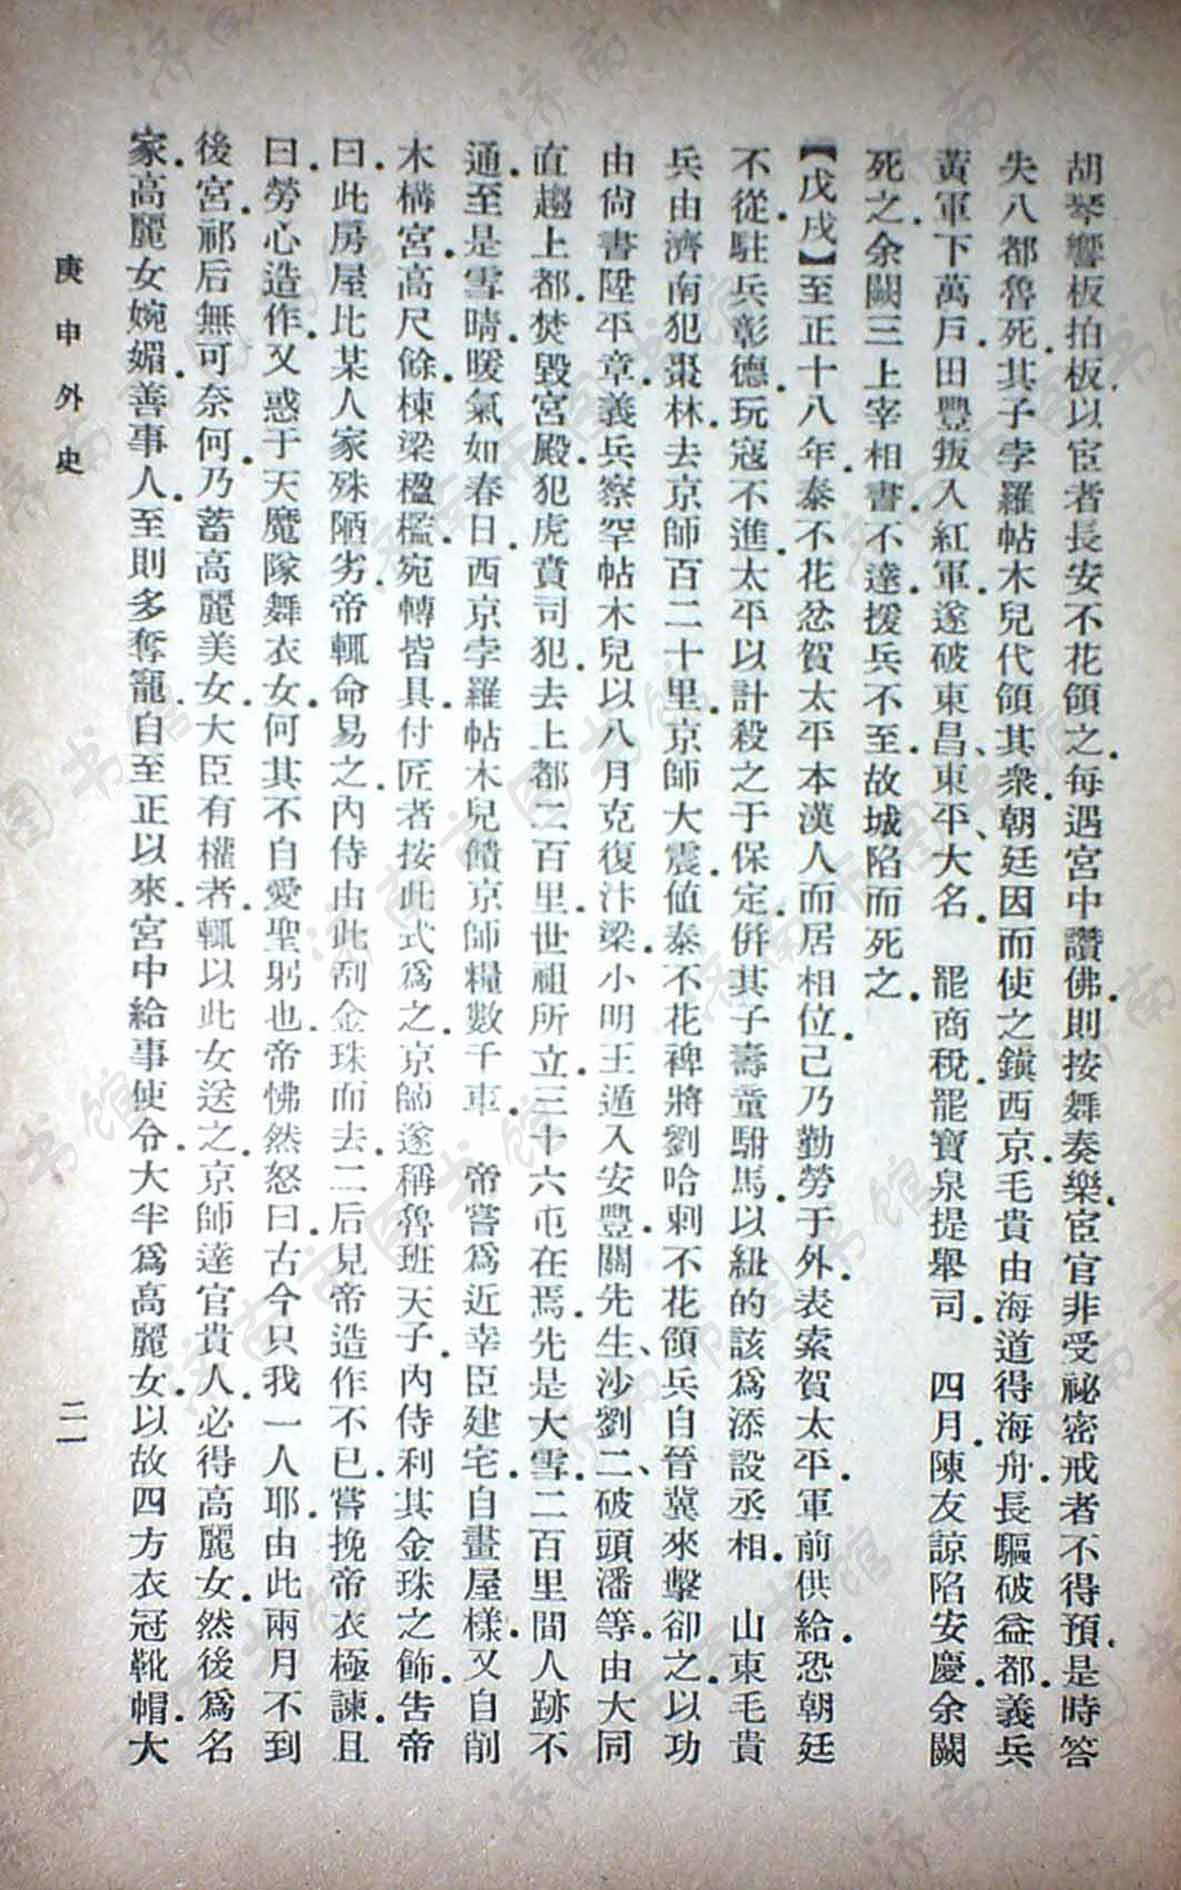 胡琴響板拍板。以宦者長安不花領之。每遇宮中讚佛。則按舞奏樂。宦官非受祕密戒者不得預。是時答
失八都魯死。其子孛羅帖木兒代領其衆。朝廷因而使之鎮西京。毛貴由海道得海舟。長驅破益都。義兵
黃軍下萬戶田豐叛入紅軍。遂破東昌、東平、大名。　罷商稅。罷寶泉提舉司。　四月。陳友諒陷安慶。余闕
死之。余闕三上宰相書。不達。援兵不至。故城陷而死之。
【戊戌】至正十八年。泰不花忿賀太平本漢人而居相位。己乃勤勞于外。表索賀太平。軍前供給。恐朝廷
不從。駐兵彰德。玩寇不進。太平以計殺之于保定。併其子壽童駙馬。以紐的該爲添設丞相。　山東毛貴
兵由濟南犯棗林。去京師百二十里。京師大震。値泰不花裨將劉哈剌不花領兵自晉冀來擊卻之。以功
由尙書陞平章。義兵察罕帖木兒以八月克復汴梁。小明王遁入安豐。關先生、沙劉二、破頭潘等。由大同
直趨上都。焚毀宮殿。犯虎賁司犯。去上都二百里。世祖所立。三十六屯在焉。先是大雪。二百里間人跡不
通。至是雪晴。暖氣如春日。西京孛羅帖木兒饋京師糧數千車。　帝嘗爲近幸臣建宅。自畫屋樣。又自削
木構宮。高尺餘。棟梁楹檻。宛轉皆具。付匠者按此式爲之。京師遂稱魯班天子。內侍利其金珠之飾。告帝
曰。此房屋比某人家殊陋劣。帝輒命易之。內侍由此刮金珠而去。二后見帝造作不已。嘗挽帝衣極諫。且
曰。勞心造作。又惑于天魔隊舞衣女。何其不自愛聖躬也。帝怫然怒曰。古今只我一人耶。由此兩月不到
後宮。祁后無可奈何。乃蓄高麗美女。大臣有權者。輒以此女送之。京師達官貴人。必得高麗女。然後爲名
家。高麗女婉媚。善事人。至則多奪寵。自至正以來。宮中給事使令。大半爲高麗女。以故四方衣冠靴帽。大
庚申外史
二一